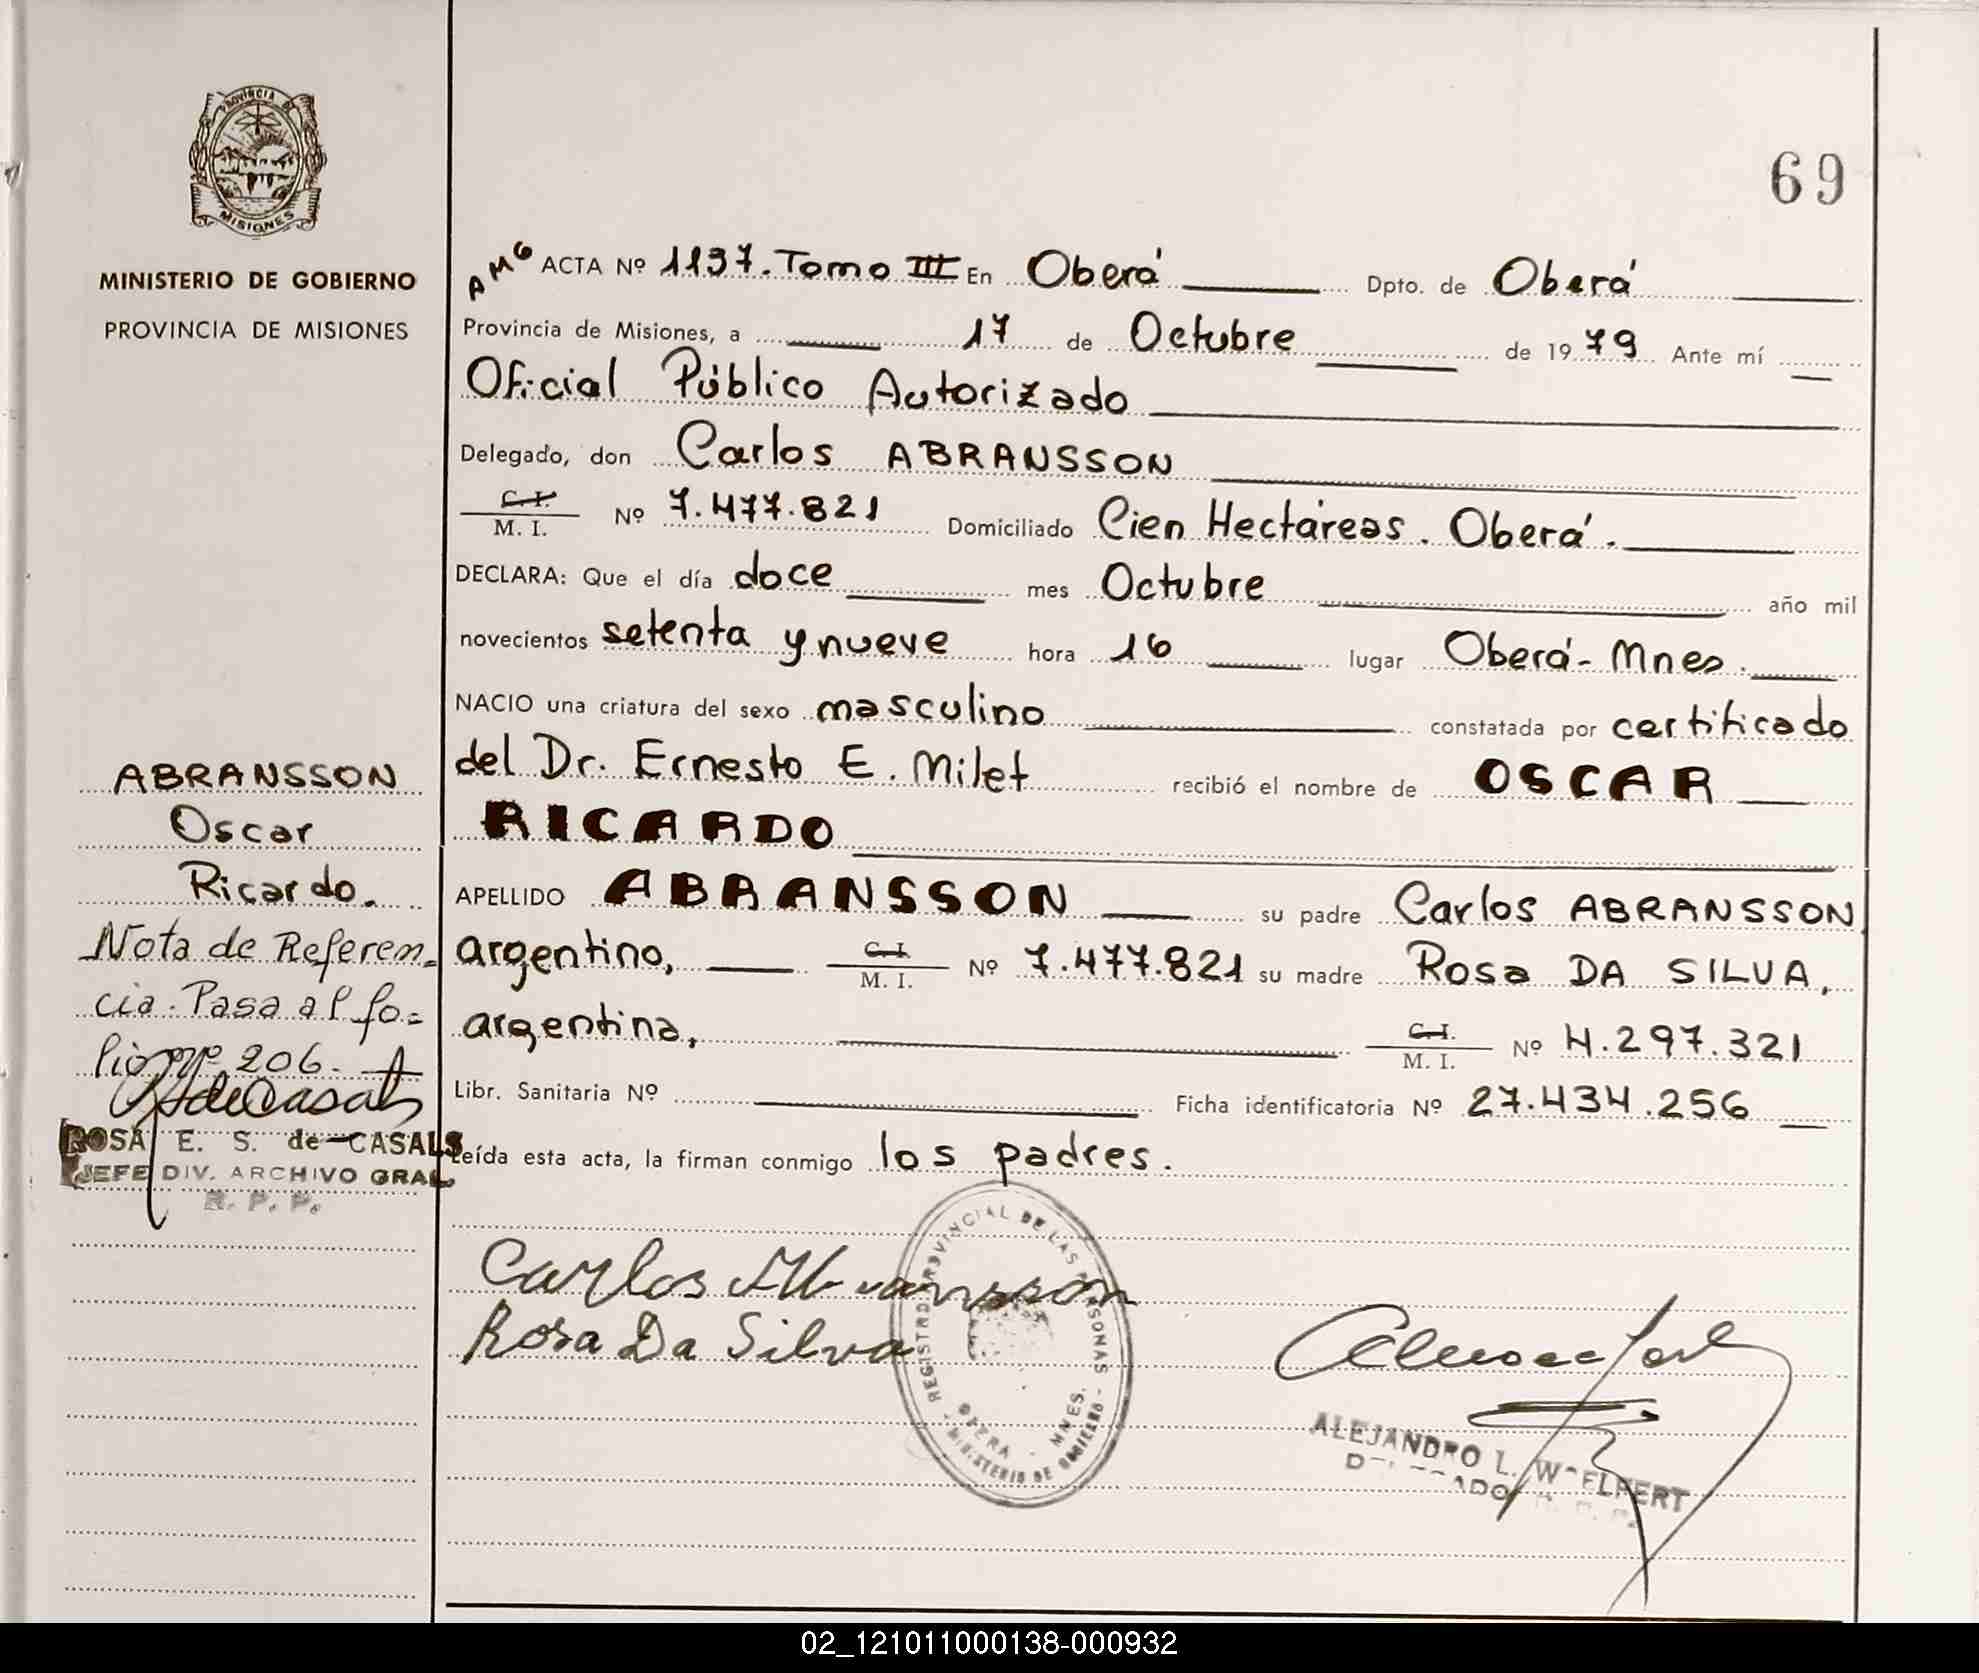 PROVINCIA DE
MISIONES
MINISTERIO DE GOBIERNO
PROVINCIA DE MISIONES
69
AMG ACTA Nº 1137. Tomo III En Oberá Dpto. de Oberá
Provincia de Misiones, a 17 de Octubre de 1979 Ante mí
Oficial Público Autorizado
Delegado, don Carlos ABRANSSON
C. I. / M. I. Nº 7.477.821 Domiciliado Cien Hectáreas. Oberá.
DECLARA: Que el día doce mes Octubre año mil
novecientos setenta y nueve hora 16 lugar Oberá - Mnes.
NACIO una criatura del sexo masculino constatada por certificado
del Dr. Ernesto E. Milet recibió el nombre de OSCAR
RICARDO
APELLIDO ABRANSSON su padre Carlos ABRANSSON
argentino, C. I. / M. I. Nº 7.477.821 su madre Rosa DA SILVA,
argentina, C. I. / M. I. Nº 4.297.321
Libr. Sanitaria Nº Ficha identificatoria Nº 27.434.256
Leída esta acta, la firman conmigo los padres.
Carlos Abransson
Rosa Da Silva
REGISTRO PROVINCIAL DE LAS PERSONAS
OBERA - MNES.
MINISTERIO DE GOBIERNO
ALEJANDRO L.
DELEGADO
ABRANSSON
Oscar
Ricardo.
Nota de Referen-
cia. Pasa al fo-
lio nº 206.
ROSA E. S. de CASALS
JEFE DIV. ARCHIVO GRAL
R. P. P.
02_121011000138-000932